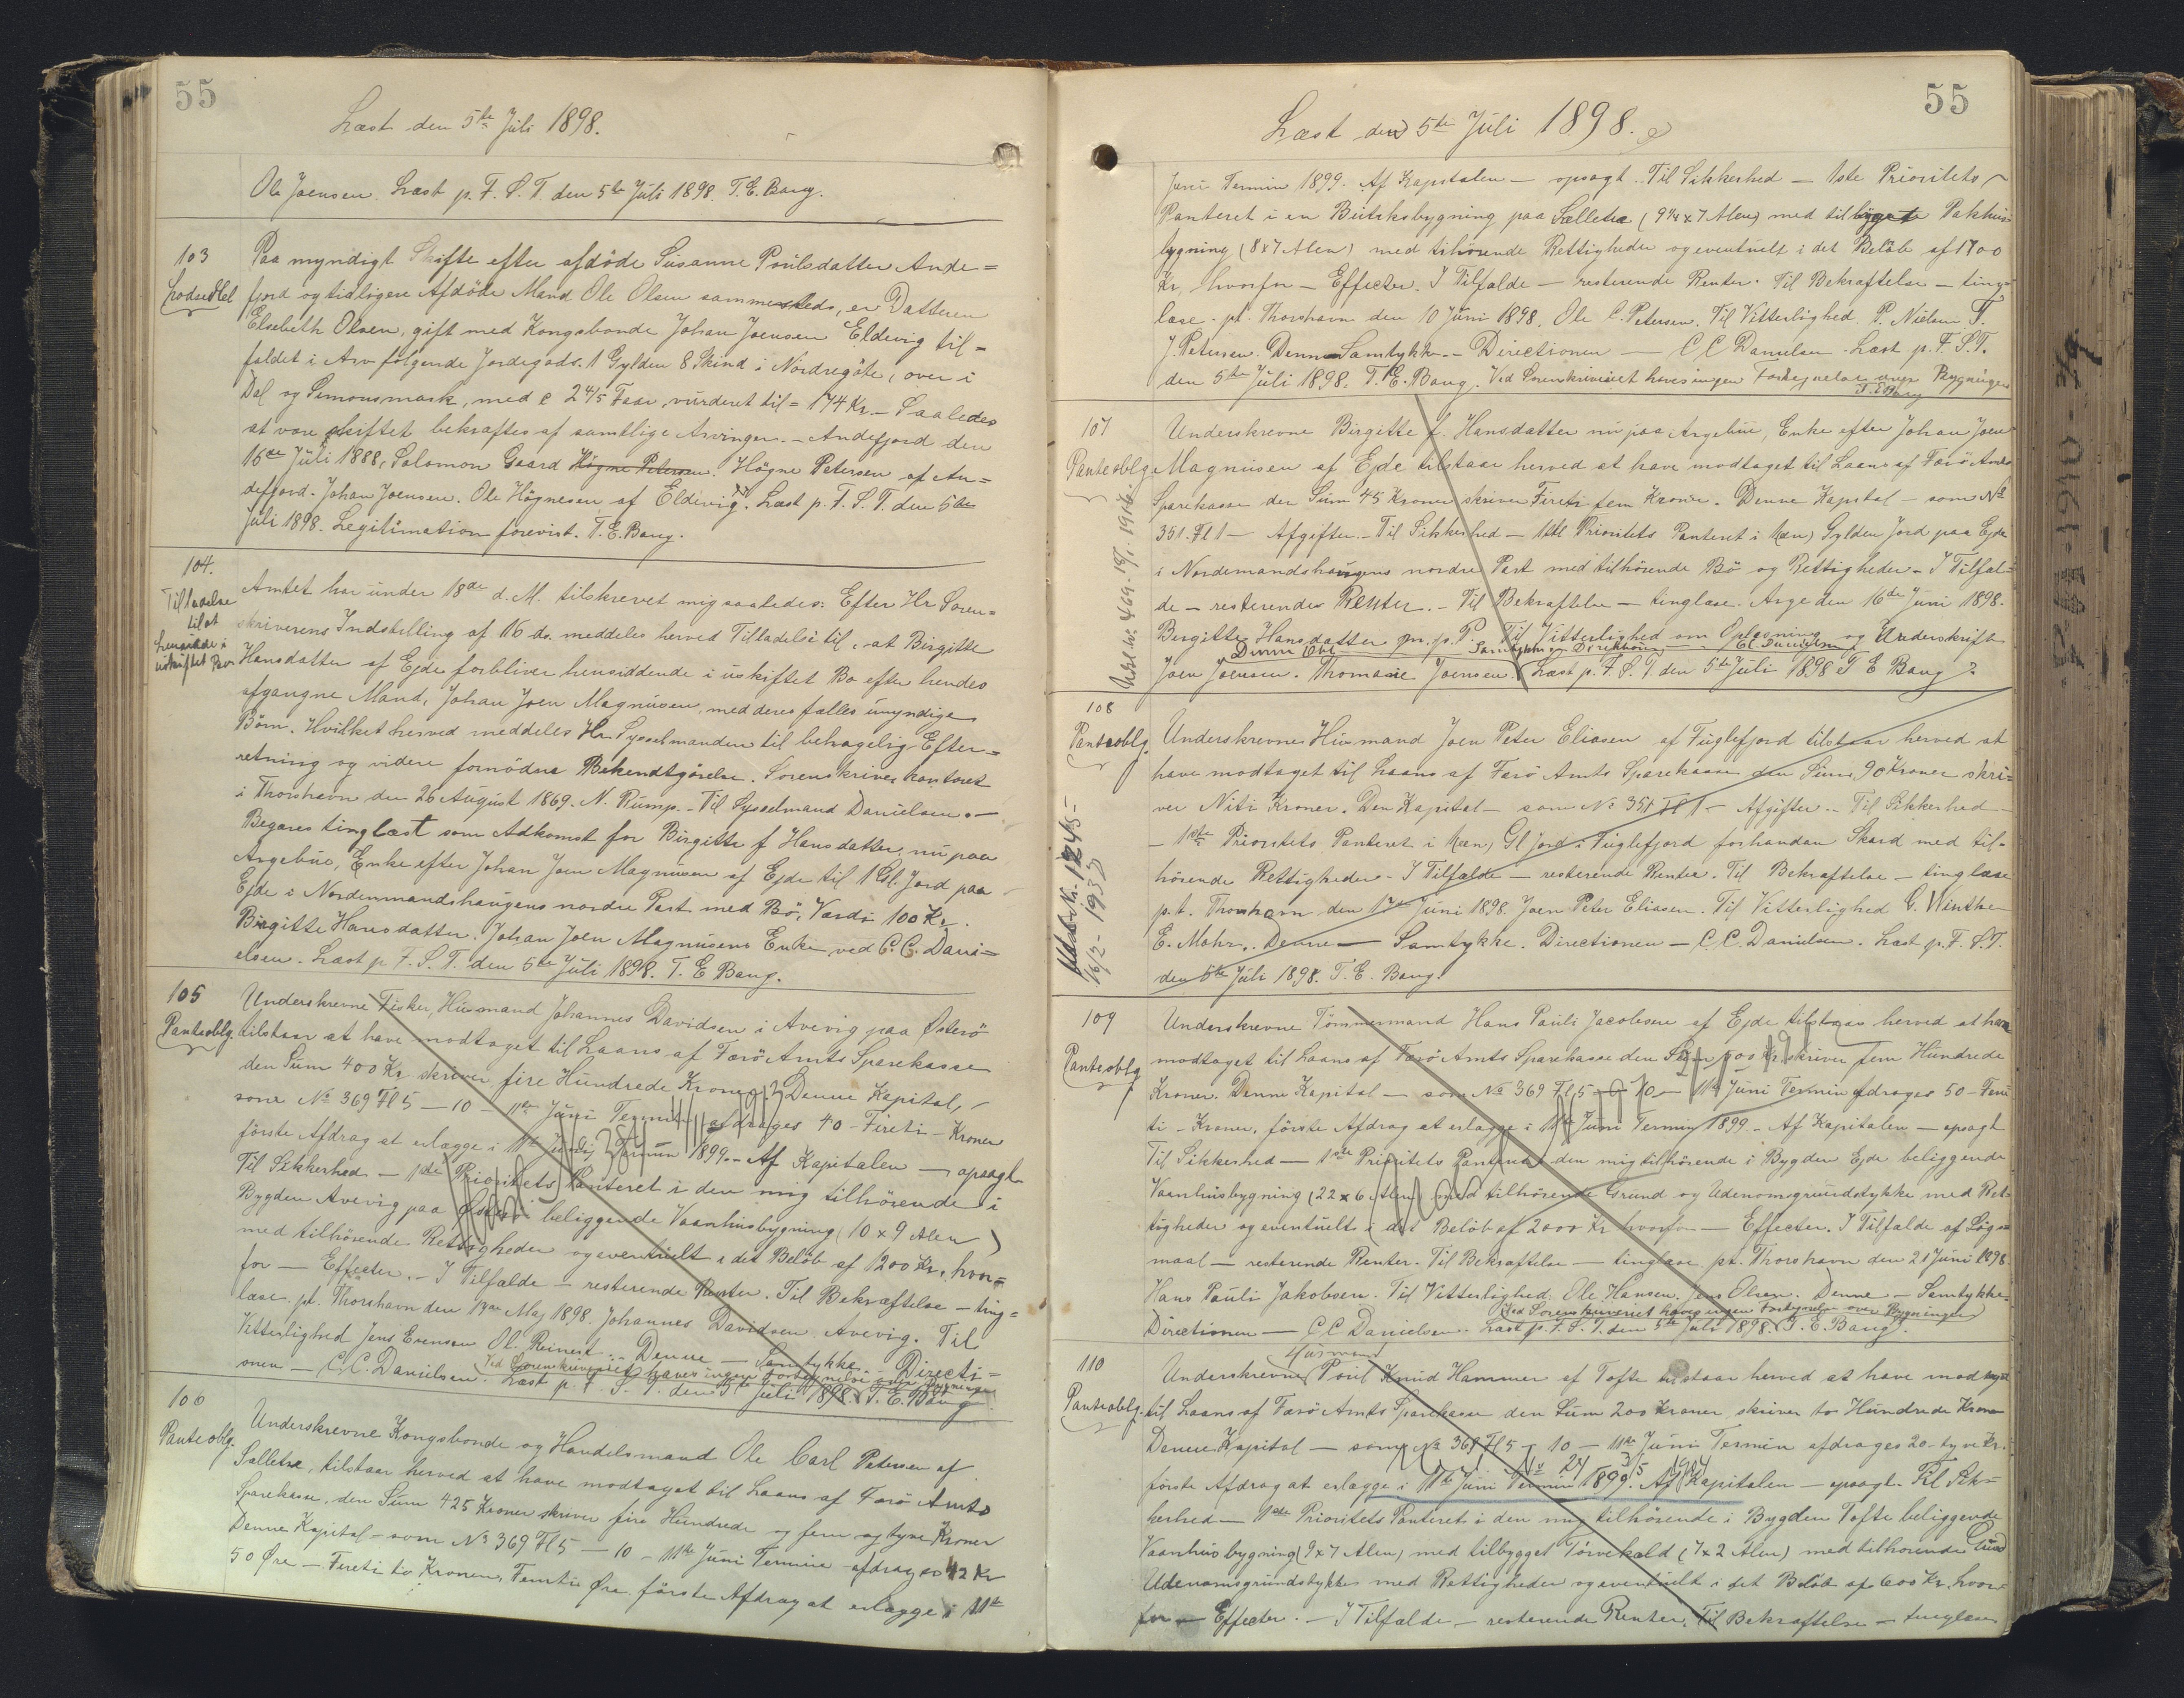 55
Læst den 5te Juli 1898.
Ole Joensen. Læst p. F. S. T. den 5te Juli 1898. T. E. Bang.
103
Lodseddel
Paa myndigt Skifte efter afdöde Susanne Poulsdatter Ande=
fjord og tidligere Afdöde Mand Ole Olsen sammesteds, er Datteren
Elsebeth Olsen, gift med Kongsbonde Johan Joensen Eldevig til=
faldet i Arv fölgende Jordegods. 1 Gylden 8 Skind i Nordregöte, over i
Dal og Simonsmark, med c 2 4/5 Faar, vurderet til = 174 Kr. - Saaledes
at være skiftet bekræftes af samtlige Arvinger. - Andefjord den
16de Juli 1888, Salomon Gaard Högne Petersen. Högne Petersen af An=
defjord. Johan Joensen. Ole Högnesen af Eldevig. Læst p. F. S. T. den 5te
Juli 1898. Legitimation forevist. T. E. Bang.
104.
Tilladelse
til at
hensidde i
uskiftet Bo
Amtet har under 18de d. M. tilskrevet mig saaledes: Efter Hr Soren=
skriverens Indstilling af 16 ds. meddeles herved Tilladelse til, at Birgitte
Hansdatter af Ejde forbliver hensiddende i uskiftet Bo efter hendes
afgangne Mand, Johan Joen Magnusen, med deres fælles umyndige
Börn. Hvilket herved meddeles Hr. Sysselmanden til behagelig Efter=
retning og videre fornödne Bekendtgörelse. Sorenskriverkontoret
i Thorshavn den 26 August 1869. N. Rump. - Til Sysselmand Danielsen. -
Begæres tinglæst som Adkomst for Birgitte f Hansdatter, nu paa
Argebue, Enke efter Johan Joen Magnusen af Ejde til 1 Gl. Jord paa
Ejde i Nordenmandshaugens nordre Part med Bö, Værdi 100 Kr.
Birgitte Hansdatter. Johan Joen Magnusens Enke ved C. C. Dani=
elsen. Læst p F. S. T. den 5te Juli 1898. T. E Bang.
105
Panteoblg.
Underskrevne Fisker, Husmand Johannes Davidsen i Avevig paa Österö
tilstaar at have modtaget til Laans af Færö Amts Sparekasse
den Sum 400 Kr skriver fire Hundrede Kroner. Denne Kapital, -
som No 369 Fl 5 - 10 - 11te Juni Termin afdrages 40 - Fireti - Kroner
förste Afdrag at erlægge i 11te Juni Termin 1899. - Af Kapitalen - opsagt
Til Sikkerhed - 1ste Prioritets Panteret i den mig tilhörende i
Bygden Avevig paa Österö beliggende Vaanhusbygning (10 x 9 Alen)
med tilhörende Rettigheder og eventuelt i det Belöb af 1200 Kr. hvor=
for - Effecter. - I Tilfælde - resterende Renter. Til Bekræftelse - ting=
læse. pt. Thorshavn den 17de Maj 1898. Johannes Davidsen Avevig. Til
Vitterlighed Jens Evensen Ol. Reinert. - Denne - Samtykke - Directi=
onen - C. C. Danielsen. Læst p. F. S. T. den 5te Juli 1898. T. E. Bang.
Ved Sorenskriveriet haves ingen Fortegnelse over Bygningen
106
Panteoblg.
Underskrevne Kongsbonde og Handelsmand Ole Carl Petersen af
Selletræ, tilstaar herved at have modtaget til Laans af Færö Amts
Sparekasse, den Sum 425 Kroner skriver fire Hundrede og fem og tyve Kroner
Denne Kapital - som No 369 Fl 5 - 10 - 11te Juni Termin afdrages 42 Kr
50 Øre - Fireti to Kroner, Femti Øre förste Afdrag at erlægge i 11te
55
Læst den 5te Juli 1898.
Juni Termin 1899. Af Kapitalen - opsagt. Til Sikkerhed - 1ste Prioritets
Panteret i en Butiksbygning paa Sælletræ (9 1/4 x 7 Alen) med tilbygget Pakhus
bygning (8 x 7 Alen) med tilhörende Rettigheder og eventuelt i det Belöb af 1700
Kr, hvorfor - Effecter. I Tilfælde - resterende Renter. Til Bekræftelse - ting=
læse. pt. Thorshavn den 10 Juni 1898. Ole C. Petersen. Til Vitterlighed P. Nielsen T.
J. Petersen. Denne - Samtykke - Directionen - C C Danielsen. Læst p. F. S. T.
den 5te Juli 1898. T. E. Bang. Ved Sorenskriveriet haves ingen Fortegnelse over Bygningen
T. E Bang
107
Panteoblg.
Underskrevne Birgitte f. Hansdatter nu paa Argebue, Enke efter Johan Joen
Magnusen af Ejde tilstaar herved at have modtaget til Laans af Færö Amts
Sparekasse den Sum 45 Kroner skriver Fireti fem Kroner. Denne Kapital - som No
351. Fl 1 - Afgifter. - Til Sikkerhed - 1ste Prioritets Panteret i 1 (en) Gylden Jord paa Ejde
i Nordenmandshaugens nordre Part med tilhörende Bö og Rettigheder. - I Tilfæl=
de - resterende Renter. - Til Bekræftelse - tinglæse. Arge den 16de Juni 1898.
Birgitte Hansdatter m. p. P. Til Vitterlighed om Oplæsning og Underskrift
Denne Obl. - Samtykke - Direktionen - C C Danielsen
Joen Joensen. Thomasie Joensen. Læst p. F. S. T. den 5te Juli 1898 T E Bang
108
Panteoblg.
Underskrevne Husmand Joen Peter Eliasen af Fuglefjord tilstaar herved at
have modtaget til Laans af Færö Amts Sparekasse den Sum 90 Kroner skri=
ver Niti Kroner. Den Kapital - som No 351 Fl 1 - Afgifter. - Til Sikkerhed -
- 1ste Prioritets Panteret i 1 (en) Gl Jord i Fuglefjord forhandan Skard med til-
hörende Rettigheder - I Tilfælde - resterende Renter. Til Bekræftelse - tinglæse
p.t. Thorshavn den 17de Juni 1898. Joen Peter Eliasen. Til Vitterlighed G. Winther
E. Mohr. Denne - Samtykke. Directionen - C. C. Danielsen. Læst p. F. S. T.
den 5te Juli 1898. T. E. Bang.
16/2 - 1937
109
Panteoblg.
Underskrevne Tömmermand Hans Pauli Jacobsen af Ejde tilstaar herved at have
modtaget til Laans af Færö Amts Sparekasse den Sum 500 Kr. skriver fem Hundrede
Kroner. Denne Kapital - som No 369 Fl 5 - 10 - 11te Juni Termin afdrages 50 - Fem
ti - Kroner, förste Afdrag at erlægge i 11te Juni Termin 1899. - Af Kapitalen - opsagt
Til Sikkerhed - 1ste Prioritets Panteret i den mig tilhörende i Bygden Ejde beliggende
Vaanhusbygning (22 x 6 Alen) med tilhörende Grund og Udenomsgrundstykke med Ret-
tigheder og eventuelt i det Belöb af 2000 Kr hvorfor - Effecter. I Tilfælde af Sögs=
maal - resterende Renter. Til Bekræftelse - tinglæse. pt. Thorshavn den 21 Juni 1898.
Hans Pauli Jakobsen. Til Vitterlighed, Ole Hansen. Jens Olsen. Denne - Samtykke
Ved Sorenskriveriet haves ingen Fortegnelse over Bygningen
Directionen - C C Danielsen. Læst p. F. S. T. den 5te Juli 1898. T. E. Bang.
110
Panteoblg.
Husmand
Underskrevne Poul Knud Hammer af Tofte tilstaar herved at have modtaget
til Laans af Færö Amts Sparekasse den Sum 200 Kroner skriver to Hundrede Kroner
Denne Kapital - som No 369 Fl 5 - 10 - 11te Juni Termin afdrages 20 - tyve Kr.
förste Afdrag at erlægge i 11te Juni Termin 1899. Af Kapitalen - opsagt. Til Sik=
kerhed - 1ste Prioritets Panteret i den mig tilhörende i Bygden Tofte beliggende
Vaanhusbygning (9 x 7 Alen) med tilbygget Törvekald (7 x 2 Alen) med tilhörende Grund
Udenomsgrundstykke med Rettigheder og eventuelt i det Belöb af 600 Kr. hvor=
for - Effecter. - I Tilfælde - resterende Renter. Til Bekræftelse - tinglæse